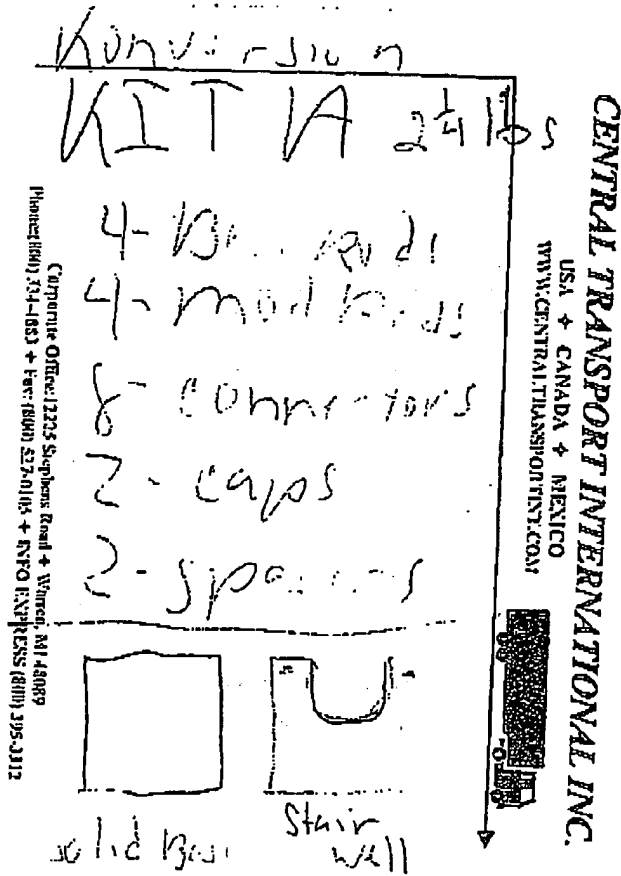 Konversion
KIT A 2 1/4 lbs
4- Rods
4- Mod Rods
8- connectors
2- caps
2-
solid Base
Stair
Well
CENTRAL TRANSPORT INTERNATIONAL INC.
USA + CANADA + MEXICO
WWW.CENTRALTRANSPORTINT.COM
Corporate Office: 12225 Stephens Road + Warren, MI 48089
Phone: (800) 334-4883 + Fax: (800) 527-0105 + INFO EXPRESS (800) 395-3312